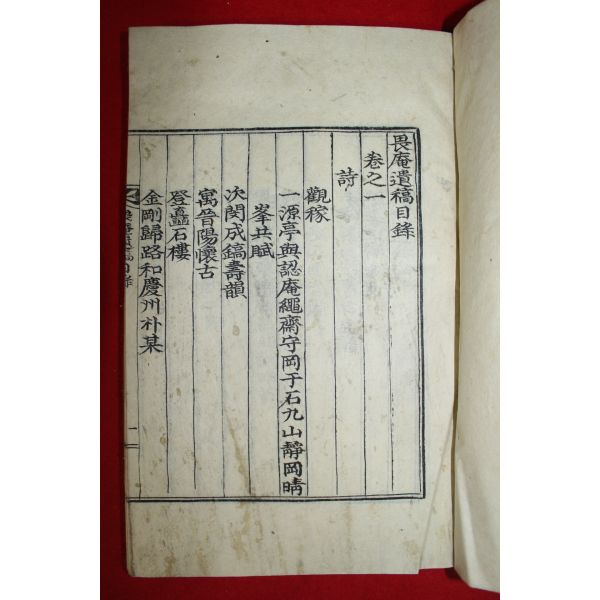 畏庵遺稿目錄
卷之一
詩
觀稼
一源亭與認庵繩齋守岡于石九山靜岡晴
峯共賦
次閔成鎬壽韻
寓晋陽懷古
登矗石樓
金剛歸路和慶州朴某
目錄
一